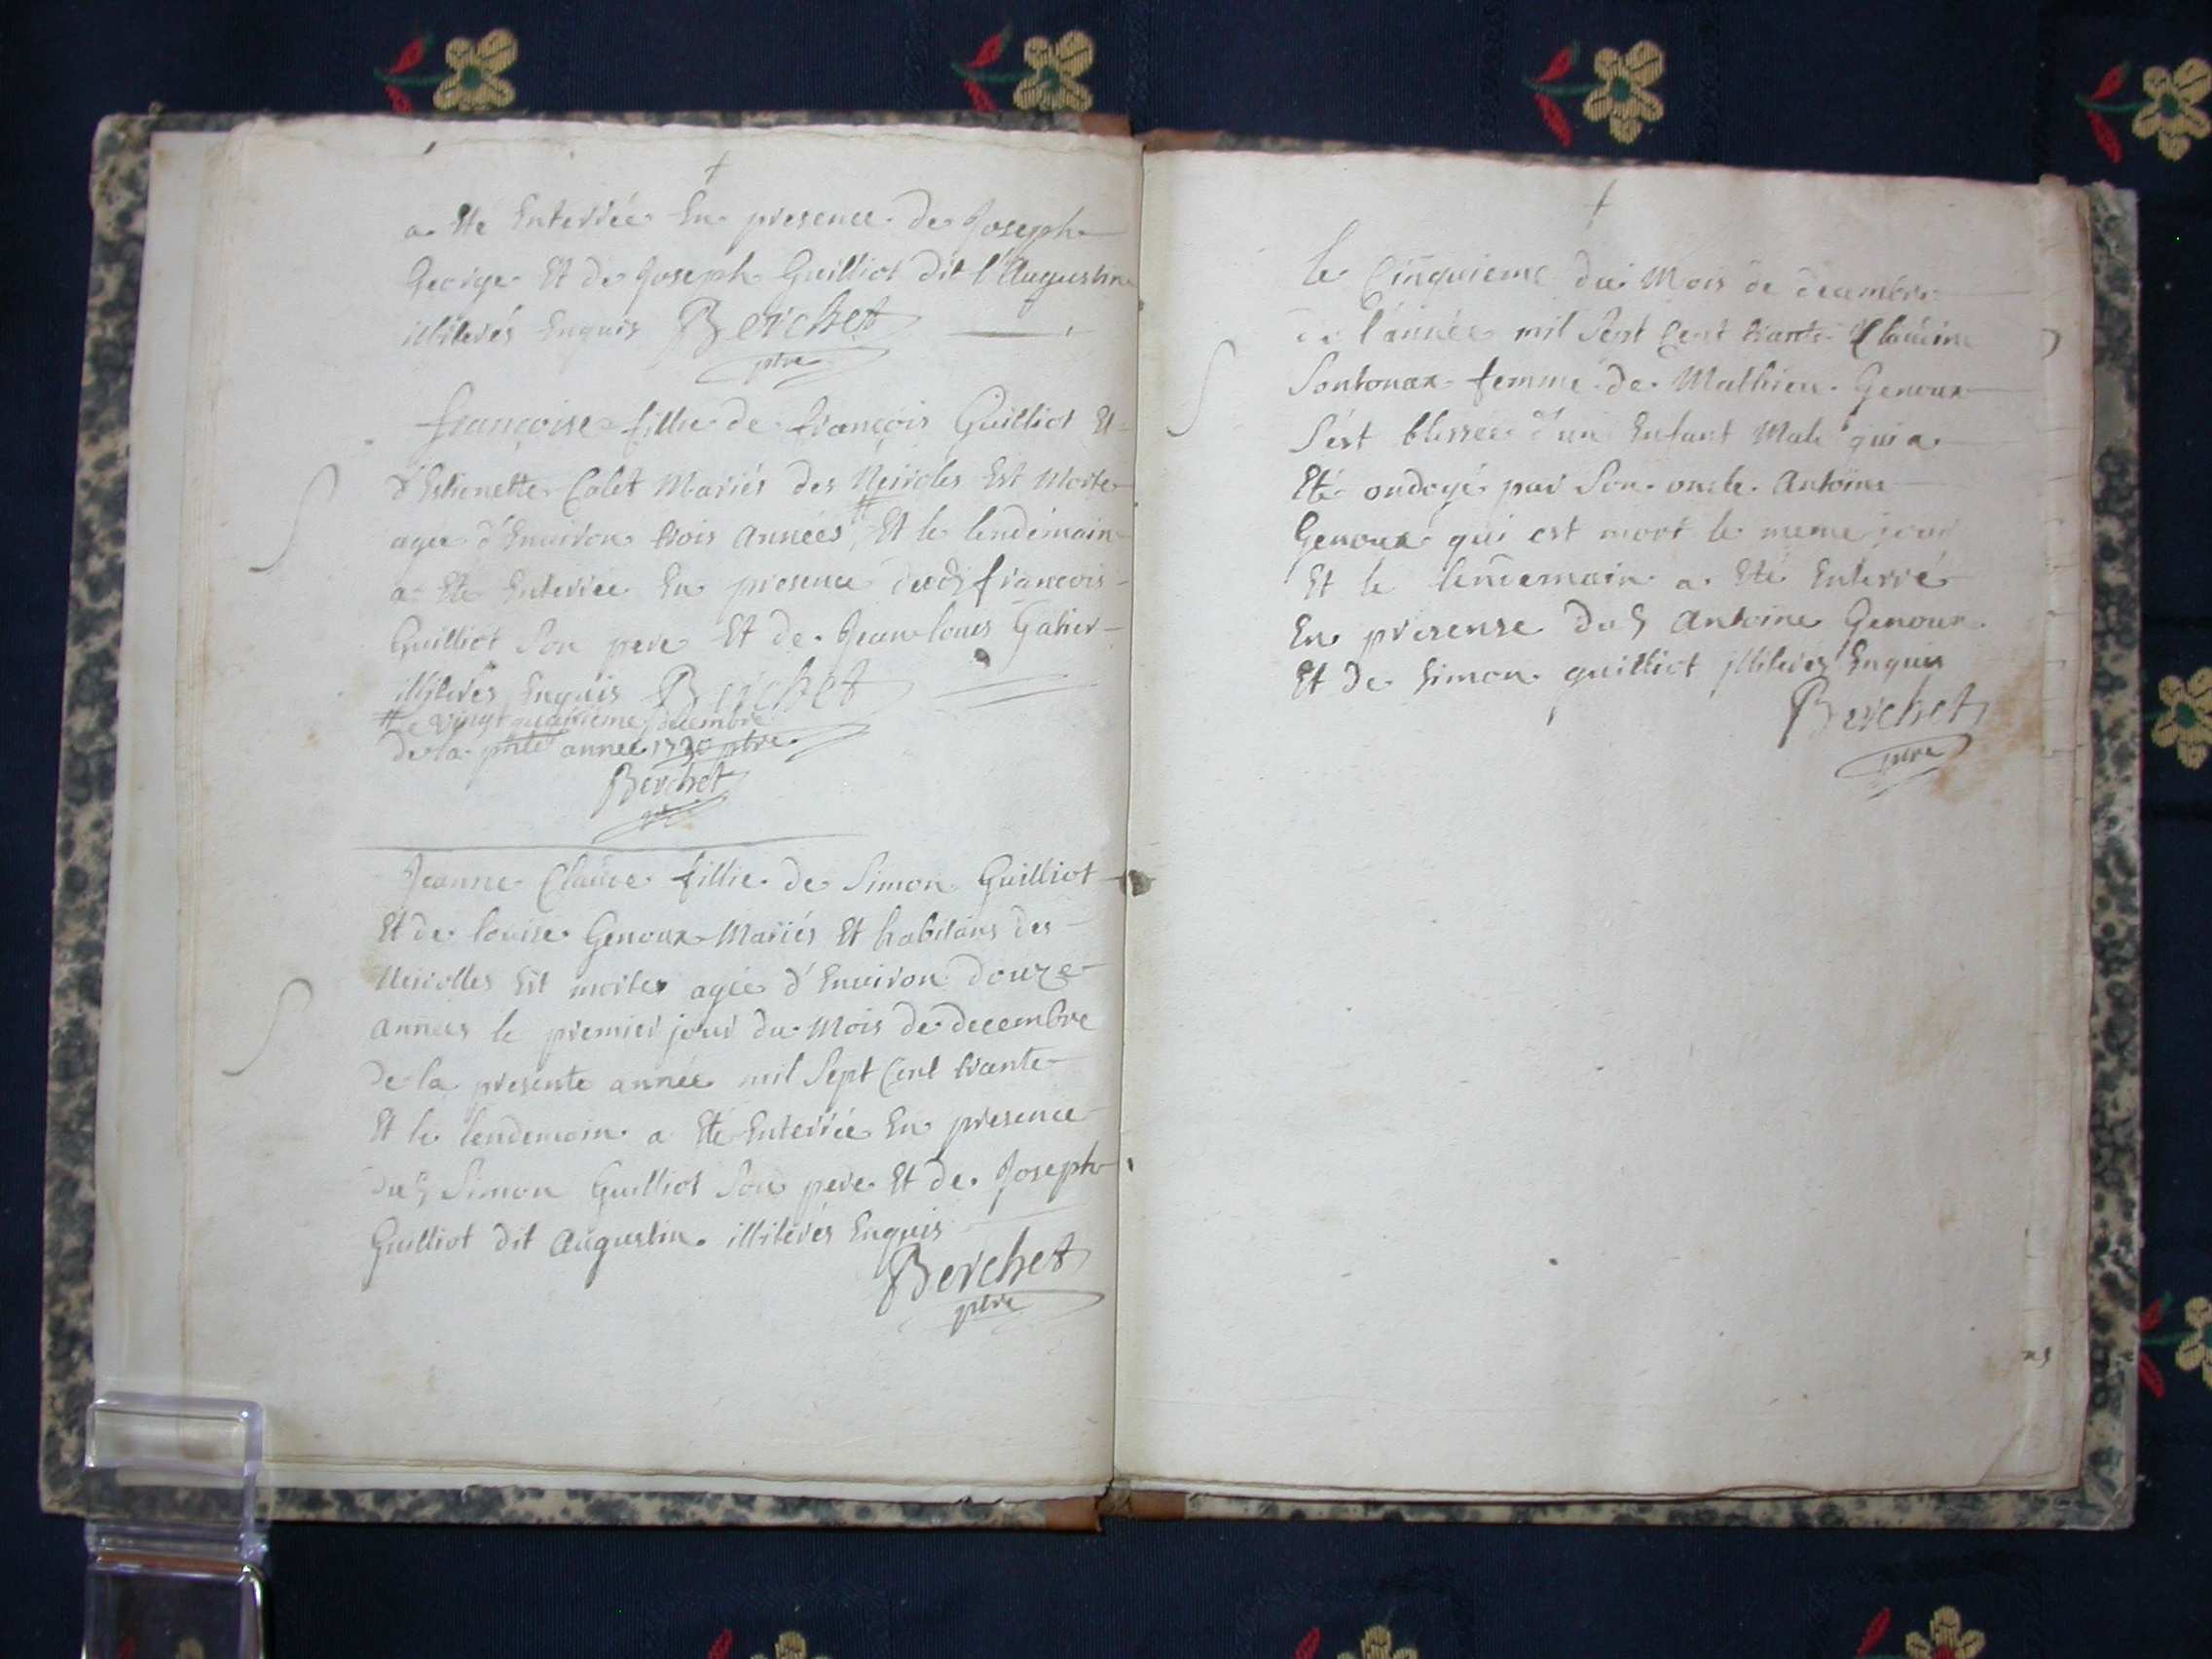 a Eté Enterrée En presence de Joseph
George Et de Joseph Guilliot dit l'Augustin
illiterés Enquis Berchet
ptre
françoise fillie de françois Guilliot Et
d'Estienette Colet Mariés des Neiroles Est Morte
agée d'Environ trois Années # Et le lendemain
a Eté Enterrée En presence dud françois
Guilliot Son pere Et de Jean louis Gahier
illiterés Enquis Berchet
# le vingt quatrieme decembre
de la pnte année 1730 ptre
Berchet
ptre
Jeanne Claude fillie de Simon Guilliot
Et de louise Genoux Mariés Et habitans des
Neirolles Est morte agée d'Environ douze
années le premier jour du Mois de decembre
de la presente année mil Sept Cent trante
Et le lendemain a Eté Enterrée En presence
dud Simon Guilliot Son pere Et de Joseph
Guilliot dit Augustin illiterés Enquis
Berchet
ptre
le Cinquieme du Mois de decembre
de l'année mil Sept Cent trante Claudine
Sontonax femme de Mathieu Genoux
S'est blessée d'un Enfant Male qui a
Eté ondoyé par Son oncle Antoine
Genoux qui est mort le meme jour
Et le lendemain a Eté Enterré
En presense dud Antoine Genoux
Et de Simon guilliot illiterés Enquis
Berchet
ptre